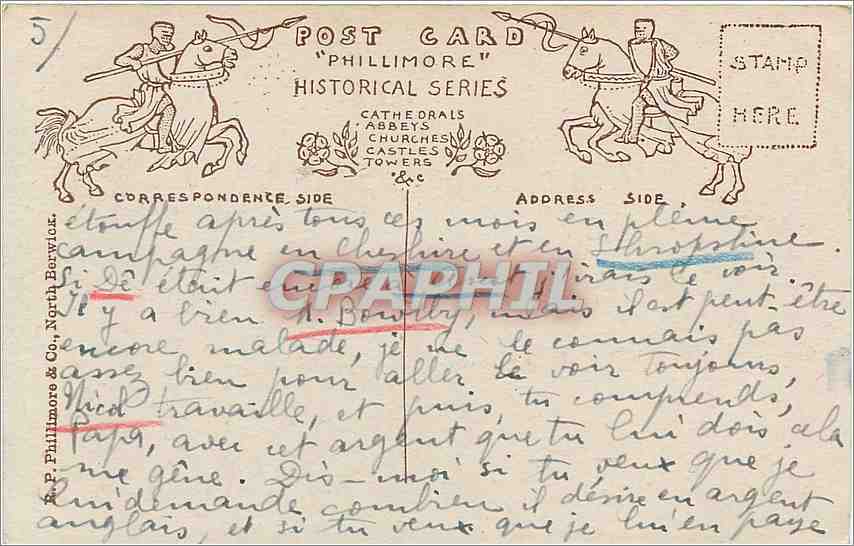 5/
POST CARD
"PHILLIMORE"
HISTORICAL SERIES
CATHEDRALS
ABBEYS
CHURCHES
CASTLES
TOWERS
&c
STAMP
HERE
CORRESPONDENCE SIDE
ADDRESS SIDE
R. P. Phillimore & Co., North Berwick.
étouffe après tous ces mois en pleine
campagne en Cheshire et en Shropshire.
Si Dê était j'irais le voir.
Il y a bien M. Bowlby, mais il est peut-être
encore malade, je ne le connais pas
assez bien pour aller le voir toujours,
Nicol travaille, et puis, tu comprends,
Papa, avec cet argent que tu lui dois, cela
me gêne. Dis-moi si tu veux que je
lui demande combien il désire en argent
anglais, et si tu veux que je lui en paye
CPARPHIL